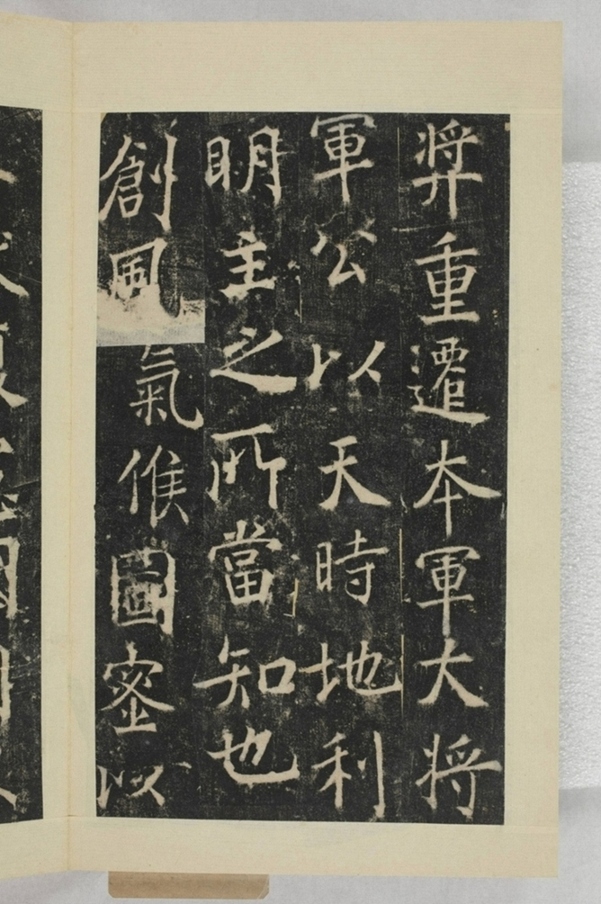 弉重遷本軍大将
軍公以天時地利
明主之所當知也
創風氣候圖密以